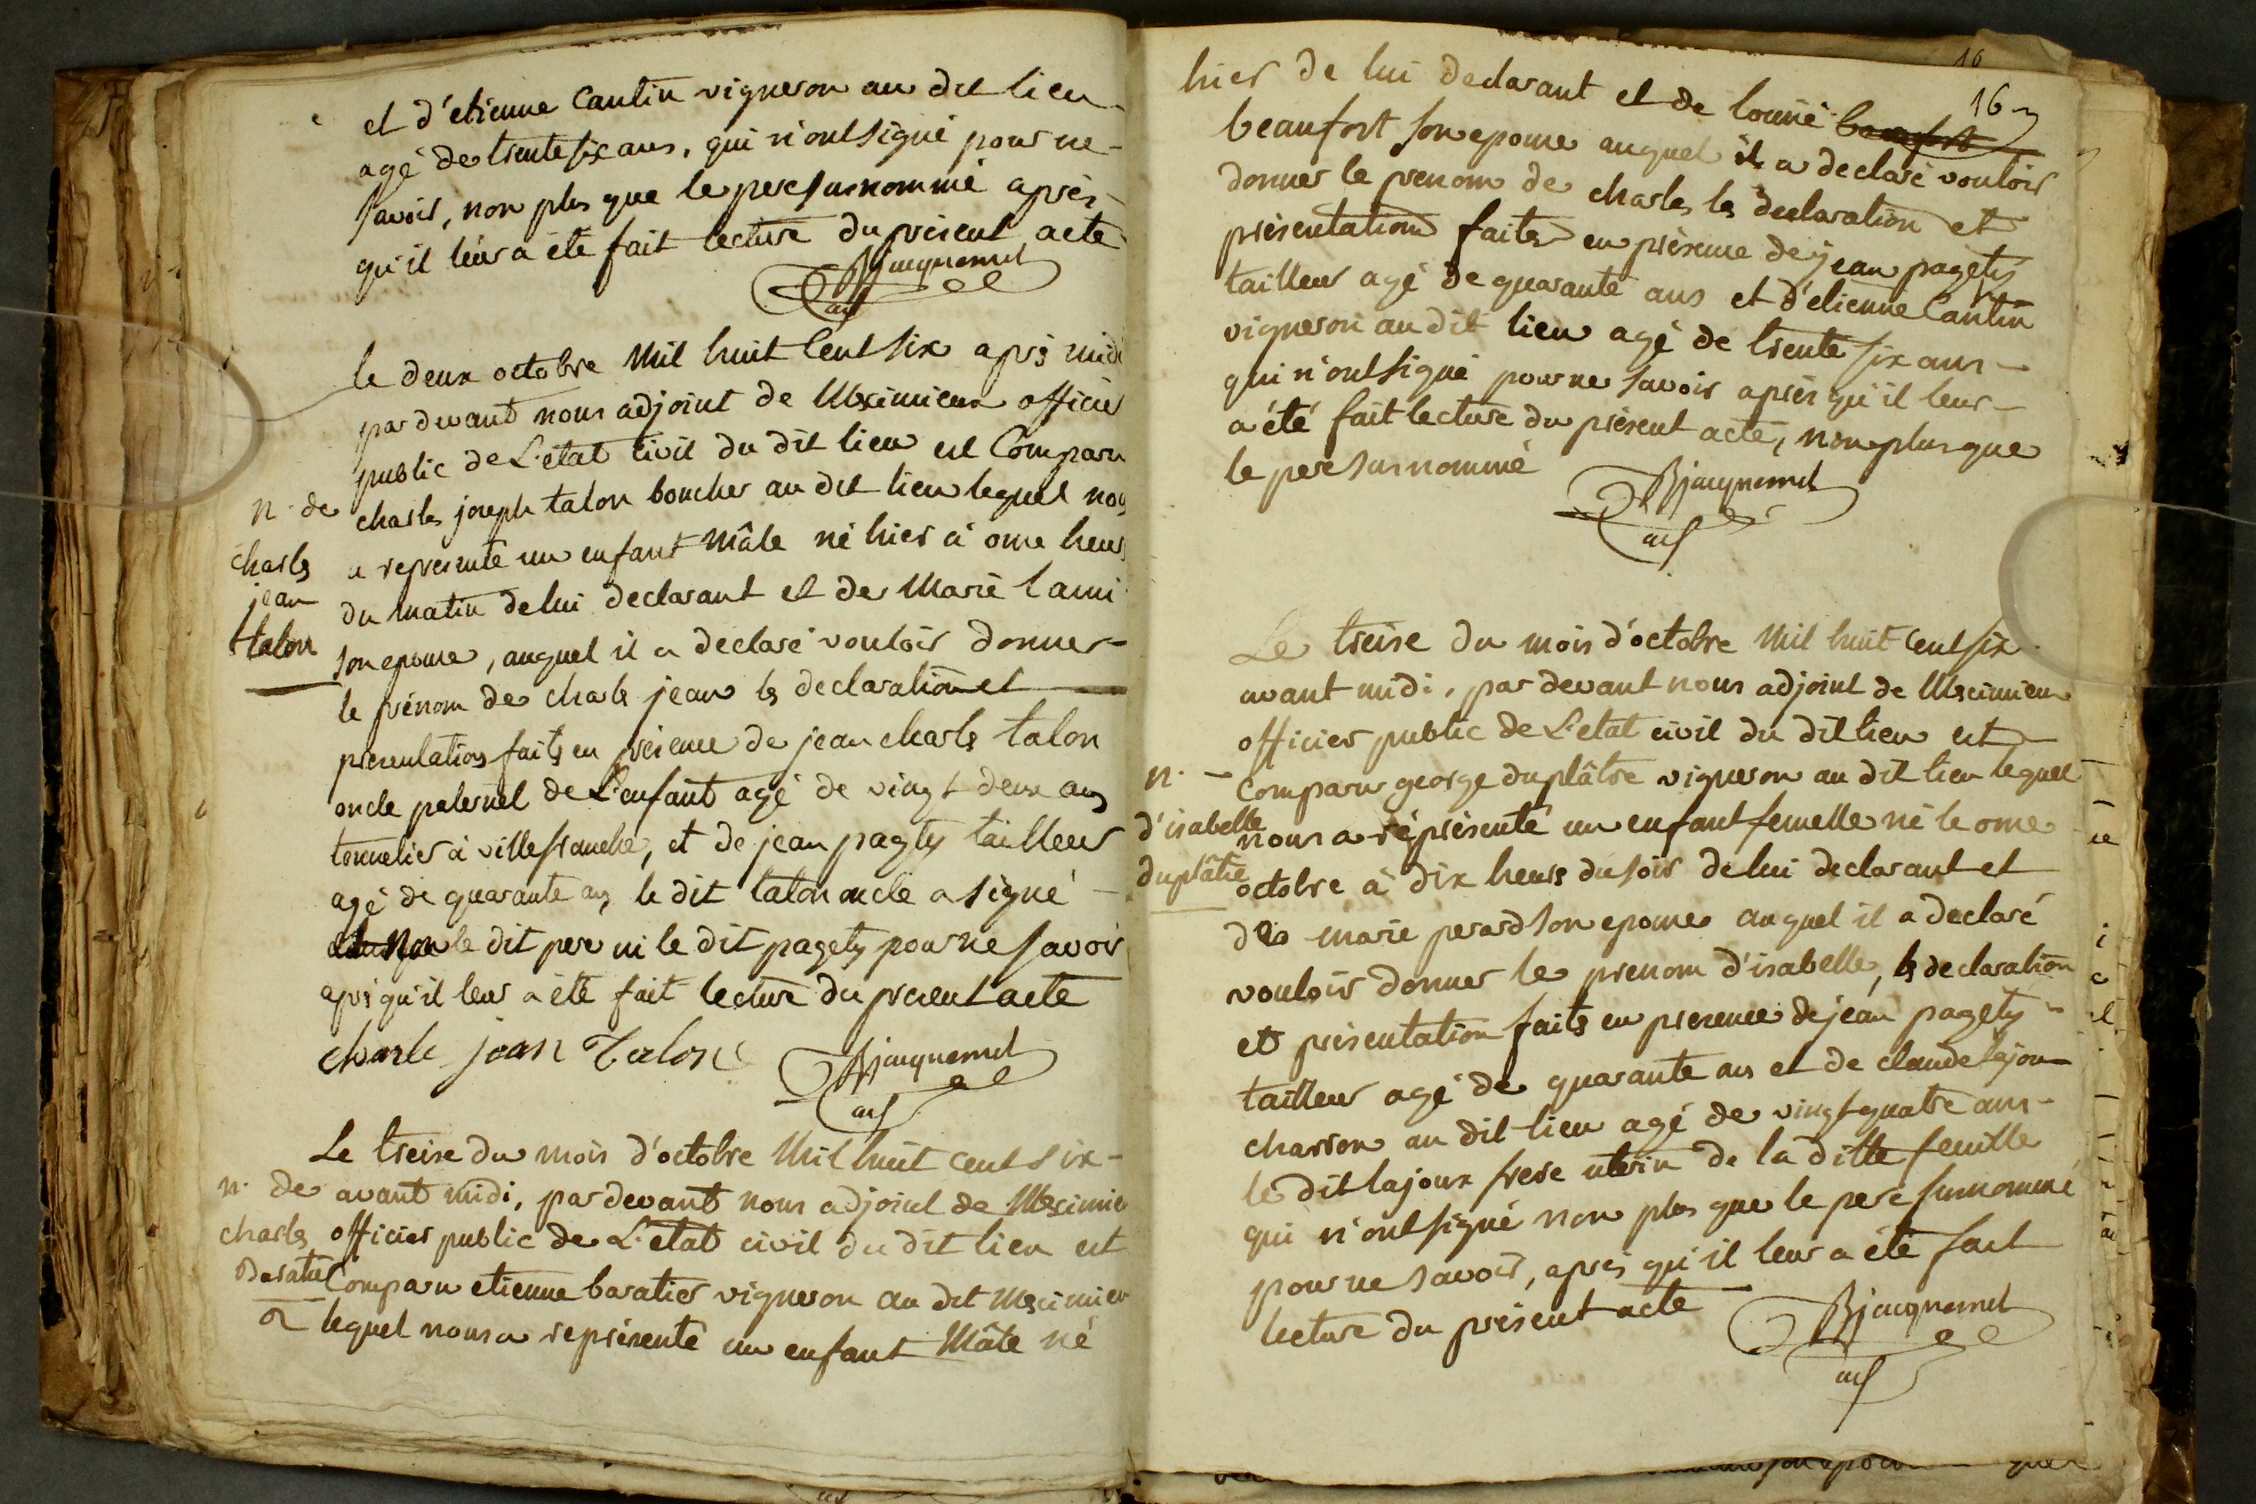 et d'etienne Cantin vigneron au dit lieu
agé de trente six ans, qui n'ont signé pour ne
savoir, non plus que le pere surnommé après
qu'il leur a été fait lecture du présent acte
BJacquemet
adj
le deux octobre mil huit cent six après midi
par devant nous adjoint de Meximieux officier
public de L'etat civil du dit lieu est Comparu
n. de
charles
jean
talon
charles joseph talon boucher au dit lieu lequel nous
a representé un enfant mâle né hier à onze heures
du matin de lui declarant et de Marie lami
son epouse, auquel il a declaré vouloir donner
le prénom de charles jean les declaration et
presentation faites en présence de jean charles talon
oncle paternel de L'enfant agé de vingt deux ans
tonnelier à villefranche, et de jean pagety tailleur
agé de quarante ans, le dit talon oncle a signé
le dit pere ni le dit pagety pour ne savoir
après qu'il leur a été fait lecture du present acte
charle jean Talon
BJacquemet
adj
Le treise du mois d'octobre mil huit cent six
n. de
charles
Baratier
avant midi, par devant nous adjoint de Meximieu
officier public de L'etat civil du dit lieu est
Comparu etienne baratier vigneron au dit Meximieu
lequel nous a représenté un enfant Mâle né
16
16
hier de lui declarant et de
beaufort son epouse auquel il a declaré vouloir
donner le prenom de charles les declaration et
présentation faites en présence de jean pagety
tailleur agé de quarante ans et d'etienne Cantin
vigneron au dit lieu agé de trente six ans
qui n'ont signé pour ne savoir après qu'il leur
a été fait lecture du présent acte, non plus que
le pere surnommé
BJacquemet
adj
Le treise du mois d'octobre mil huit cent six
avant midi, par devant nous adjoint de Meximieux
officier public de L'etat civil du dit lieu est
n.
d'isabelle
duplâtre
Comparu george duplâtre vigneron au dit lieu lequel
nous a réprésenté un enfant femelle né le onze
octobre à dix heures du soir de lui declarant et
de marie perard son epouse auquel il a declaré
vouloir donner le prenom d'isabelle, les declaration
et présentation faites en presence de jean pagety
tailleur agé de quarante ans et de claude lajoux
charron au dit lieu agé de vingt quatre ans
le dit lajoux frere uterin de la ditte femille
qui n'ont signé non plus que le pere surnommé
pour ne savoir, après qu'il leur a été fait
lecture du présent acte
BJacquemet
adj